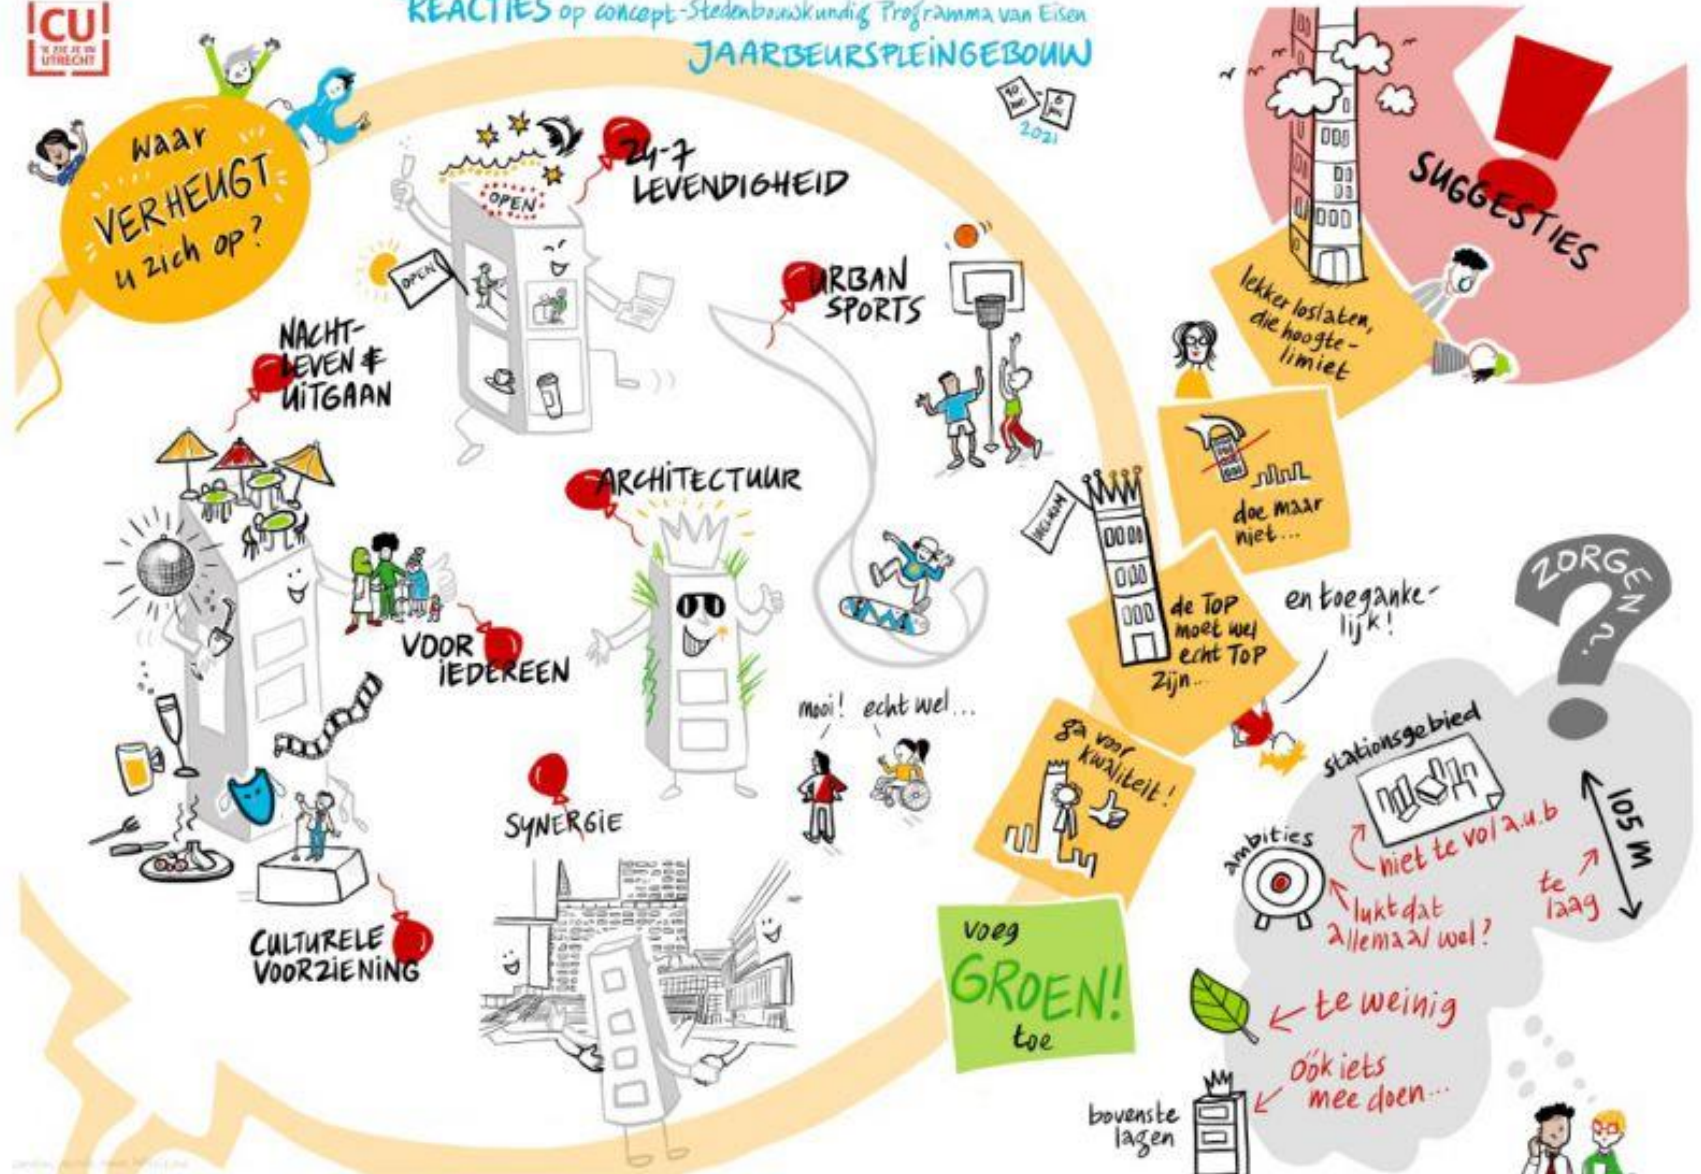 CU
'K ZIE JE IN
UTRECHT
REACTIES op concept-Stedenbouwkundig Programma van Eisen
JAARBEURSPLEINGEBOUW
2021
waar
VERHEUGT
u zich op?
24-7
LEVENDIGHEID
OPEN
OPEN
URBAN
SPORTS
NACHT-
LEVEN &
UITGAAN
ARCHITECTUUR
VOOR
IEDEREEN
mooi! echt wel...
SYNERGIE
CULTURELE
VOORZIENING
SUGGESTIES
lekker loslaten,
die hoogte-
limiet
doe maar
niet...
WELKOM
de TOP
moet wel
echt TOP
zijn...
en toeganke-
lijk!
ga voor
kwaliteit!
voeg
GROEN!
toe
ZORGEN?
stationsgebied
niet te vol a.u.b
105 M
te
laag
ambities
lukt dat
allemaal wel?
te weinig
óók iets
mee doen...
bovenste
lagen